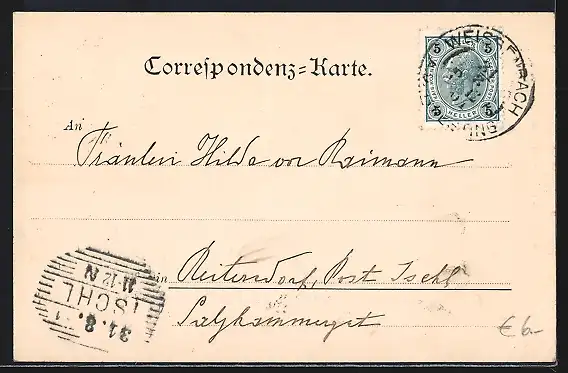 Correspondenz-Karte.
An
Fräulein Hilde von Raimann
in Reiterndorf, Post Ischl
Salzkammergut
5 5
5 5
HELLER
WEISSENBACH
ISCHL
31.8.
11-12 N
€ 6.-